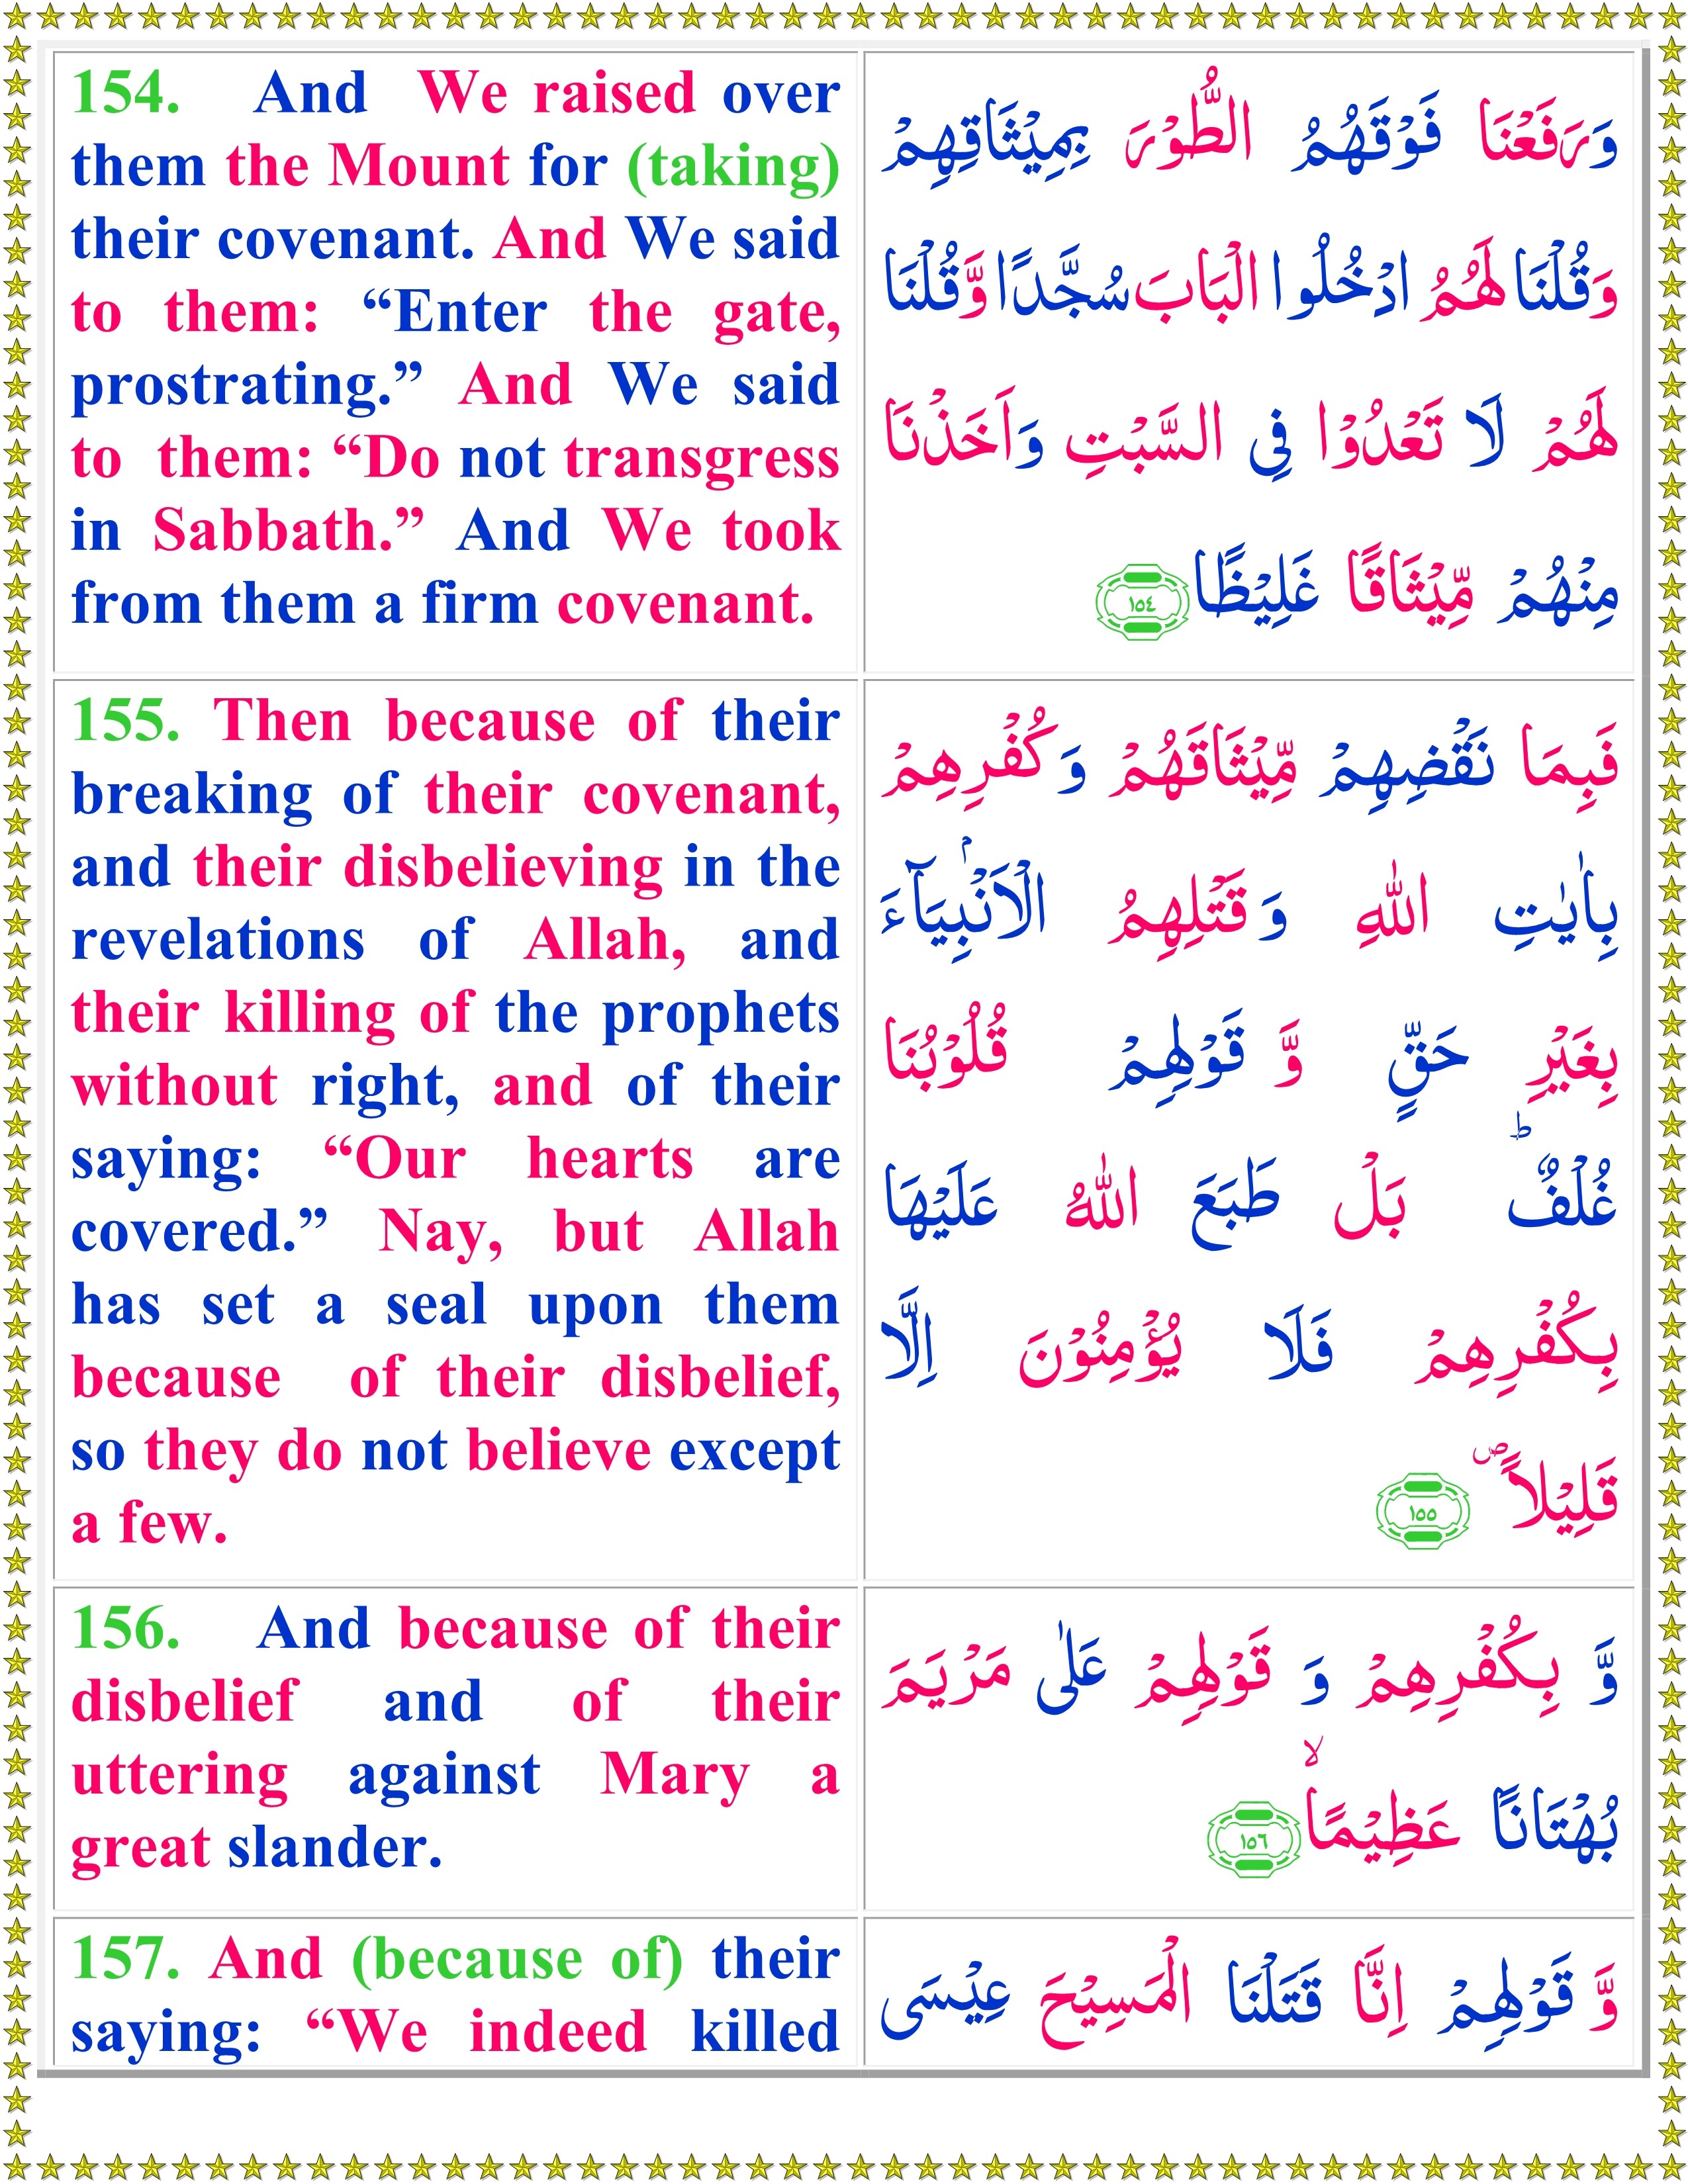 154. And We raised over
them the Mount for (taking)
their covenant. And We said
to them: “Enter the gate,
prostrating.” And We said
to them: “Do not transgress
in Sabbath.” And We took
from them a firm covenant.
وَرَفَعْنَا فَوْقَهُمُ الطُّوْرَ بِمِيْثَاقِهِمْ
وَقُلْنَا لَهُمُ ادْخُلُوا الْبَابَ سُجَّدًا وَّقُلْنَا
لَهُمْ لَا تَعْدُوْا فِى السَّبْتِ وَاَخَذْنَا
مِنْهُمْ مِّيْثَاقًا غَلِيْظًا ١٥٤
155. Then because of their
breaking of their covenant,
and their disbelieving in the
revelations of Allah, and
their killing of the prophets
without right, and of their
saying: “Our hearts are
covered.” Nay, but Allah
has set a seal upon them
because of their disbelief,
so they do not believe except
a few.
فَبِمَا نَقْضِهِمْ مِّيْثَاقَهُمْ وَكُفْرِهِمْ
بِاٰيٰتِ اللّٰهِ وَقَتْلِهِمُ الْاَنْۢبِيَآءَ
بِغَيْرِ حَقٍّ وَّ قَوْلِهِمْ قُلُوْبُنَا
غُلْفٌ ؕ بَلْ طَبَعَ اللّٰهُ عَلَيْهَا
بِكُفْرِهِمْ فَلَا يُؤْمِنُوْنَ اِلَّا
قَلِيْلاً ۖ ١٥٥
156. And because of their
disbelief and of their
uttering against Mary a
great slander.
وَّ بِكُفْرِهِمْ وَ قَوْلِهِمْ عَلٰى مَرْيَمَ
بُهْتَانًا عَظِيْمًا ۙ ١٥٦
157. And (because of) their
saying: “We indeed killed
وَّ قَوْلِهِمْ اِنَّا قَتَلْنَا الْمَسِيْحَ عِيْسَى